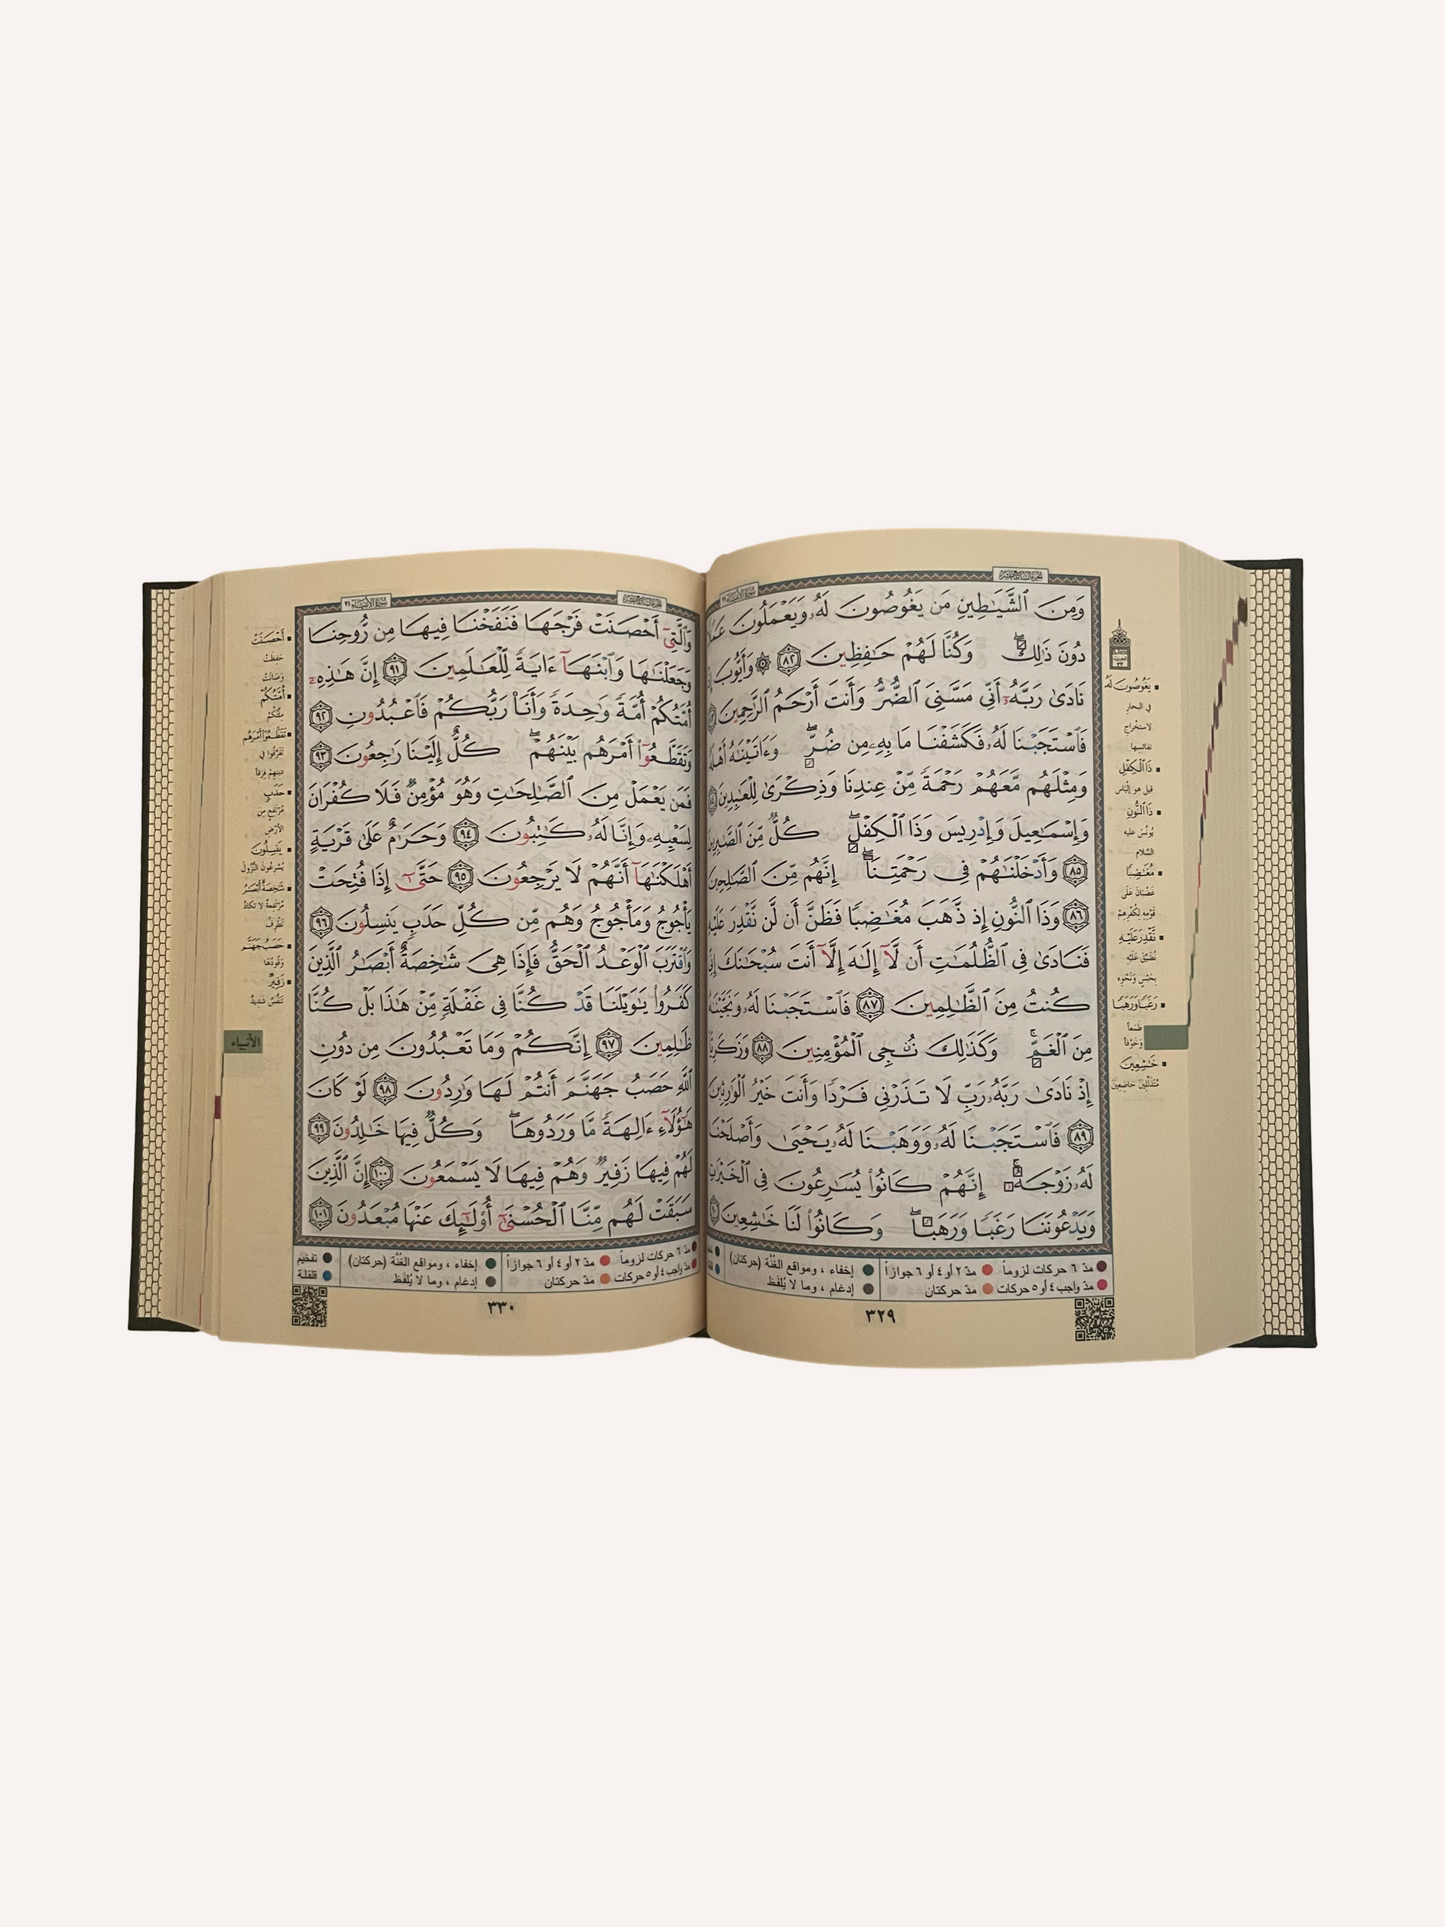 وَمِنَ ٱلشَّيَٰطِينِ مَن يَغُوصُونَ لَهُۥ وَيَعْمَلُونَ
دُونَ ذَٰلِكَ ۖ وَكُنَّا لَهُمْ حَٰفِظِينَ ٨٢ ۞ وَأَيُّوبَ
نَادَىٰ رَبَّهُۥٓ أَنِّى مَسَّنِىَ ٱلضُّرُّ وَأَنتَ أَرْحَمُ ٱلرَّٰحِمِينَ
فَٱسْتَجَبْنَا لَهُۥ فَكَشَفْنَا مَا بِهِۦ مِن ضُرٍّ ۖ وَءَاتَيْنَٰهُ أَهْلَهُۥ
وَمِثْلَهُم مَّعَهُمْ رَحْمَةً مِّنْ عِندِنَا وَذِكْرَىٰ لِلْعَٰبِدِينَ
وَإِسْمَٰعِيلَ وَإِدْرِيسَ وَذَا ٱلْكِفْلِ ۖ كُلٌّ مِّنَ ٱلصَّٰبِرِينَ
٨٥ وَأَدْخَلْنَٰهُمْ فِى رَحْمَتِنَآ ۖ إِنَّهُم مِّنَ ٱلصَّٰلِحِينَ
٨٦ وَذَا ٱلنُّونِ إِذ ذَّهَبَ مُغَٰضِبًا فَظَنَّ أَن لَّن نَّقْدِرَ عَلَيْهِ
فَنَادَىٰ فِى ٱلظُّلُمَٰتِ أَن لَّآ إِلَٰهَ إِلَّآ أَنتَ سُبْحَٰنَكَ إِنِّى
كُنتُ مِنَ ٱلظَّٰلِمِينَ ٨٧ فَٱسْتَجَبْنَا لَهُۥ وَنَجَّيْنَٰهُ
مِنَ ٱلْغَمِّ ۚ وَكَذَٰلِكَ نُۨجِى ٱلْمُؤْمِنِينَ ٨٨ وَزَكَرِيَّآ
إِذْ نَادَىٰ رَبَّهُۥ رَبِّ لَا تَذَرْنِى فَرْدًا وَأَنتَ خَيْرُ ٱلْوَٰرِثِينَ
٨٩ فَٱسْتَجَبْنَا لَهُۥ وَوَهَبْنَا لَهُۥ يَحْيَىٰ وَأَصْلَحْنَا
لَهُۥ زَوْجَهُۥٓ ۚ إِنَّهُمْ كَانُوا۟ يُسَٰرِعُونَ فِى ٱلْخَيْرَٰتِ
وَيَدْعُونَنَا رَغَبًا وَرَهَبًا ۖ وَكَانُوا۟ لَنَا خَٰشِعِينَ
يَغُوصُونَ لَهُ
في البحار
لاستخراج
نفائسها
ذَا ٱلْكِفْلِ
قيل هو إلياس
ذَا ٱلنُّونِ
يُونُسَ عليه
السّلام
مُغَٰضِبًا
غضبانَ عَلَى
قَوْمِهِ لِكُفْرِهِمْ
نَّقْدِرَ عَلَيْهِ
نُضَيِّقَ عَلَيْهِ
بِحَبْسٍ وَنَحْوِهِ
رَغَبًا وَرَهَبًا
طَمَعاً
وَخَوْفاً
خَٰشِعِينَ
مُتَذَلِّلِينَ خاضِعِينَ
مدّ ٦ حركات لزوماً مدّ ٢ أو ٤ أو ٦ جوازاً إخفاء ، ومواقع الغُنّة (حركتان)
مدّ واجب ٤ أو ٥ حركات مدّ حركتان إدغام ، وما لا يُلفَظ
٣٢٩
وَٱلَّتِىٓ أَحْصَنَتْ فَرْجَهَا فَنَفَخْنَا فِيهَا مِن رُّوحِنَا
وَجَعَلْنَٰهَا وَٱبْنَهَآ ءَايَةً لِّلْعَٰلَمِينَ ٩١ إِنَّ هَٰذِهِۦٓ
أُمَّتُكُمْ أُمَّةً وَٰحِدَةً وَأَنَا۠ رَبُّكُمْ فَٱعْبُدُونِ ٩٢
وَتَقَطَّعُوٓا۟ أَمْرَهُم بَيْنَهُمْ ۖ كُلٌّ إِلَيْنَا رَٰجِعُونَ ٩٣
فَمَن يَعْمَلْ مِنَ ٱلصَّٰلِحَٰتِ وَهُوَ مُؤْمِنٌ فَلَا كُفْرَانَ
لِسَعْيِهِۦ وَإِنَّا لَهُۥ كَٰتِبُونَ ٩٤ وَحَرَٰمٌ عَلَىٰ قَرْيَةٍ
أَهْلَكْنَٰهَآ أَنَّهُمْ لَا يَرْجِعُونَ ٩٥ حَتَّىٰٓ إِذَا فُتِحَتْ
يَأْجُوجُ وَمَأْجُوجُ وَهُم مِّن كُلِّ حَدَبٍ يَنسِلُونَ ٩٦
وَٱقْتَرَبَ ٱلْوَعْدُ ٱلْحَقُّ فَإِذَا هِىَ شَٰخِصَةٌ أَبْصَٰرُ ٱلَّذِينَ
كَفَرُوا۟ يَٰوَيْلَنَا قَدْ كُنَّا فِى غَفْلَةٍ مِّنْ هَٰذَا بَلْ كُنَّا
ظَٰلِمِينَ ٩٧ إِنَّكُمْ وَمَا تَعْبُدُونَ مِن دُونِ
ٱللَّهِ حَصَبُ جَهَنَّمَ أَنتُمْ لَهَا وَٰرِدُونَ ٩٨ لَوْ كَانَ
هَٰٓؤُلَآءِ ءَالِهَةً مَّا وَرَدُوهَا ۖ وَكُلٌّ فِيهَا خَٰلِدُونَ ٩٩
لَهُمْ فِيهَا زَفِيرٌ وَهُمْ فِيهَا لَا يَسْمَعُونَ ١٠٠ إِنَّ ٱلَّذِينَ
سَبَقَتْ لَهُم مِّنَّا ٱلْحُسْنَىٰٓ أُو۟لَٰٓئِكَ عَنْهَا مُبْعَدُونَ ١٠١
أَحْصَنَتْ
حَفِظَتْ
وَصَانَتْ
أُمَّتُكُمْ
مِلَّتُكُمْ
تَقَطَّعُوٓا۟ أَمْرَهُم
تَفَرَّقُوا فِي
دِينِهِمْ فِرَقاً
حَدَبٍ
مُرْتَفِعٍ مِنَ
الأَرْضِ
يَنسِلُونَ
يُسْرِعُونَ النُّزُولَ
شَٰخِصَةٌ أَبْصَٰرُ
مُرْتَفِعَةٌ لا تَكَادُ
تَطْرِفُ
حَصَبُ جَهَنَّمَ
وَقُودُهَا
زَفِيرٌ
تَنَفُّسٌ شَدِيدٌ
الأنبياء
مدّ ٦ حركات لزوماً مدّ ٢ أو ٤ أو ٦ جوازاً إخفاء ، ومواقع الغُنّة (حركتان) تفخيم
مدّ واجب ٤ أو ٥ حركات مدّ حركتان إدغام ، وما لا يُلفَظ قلقلة
٣٣٠